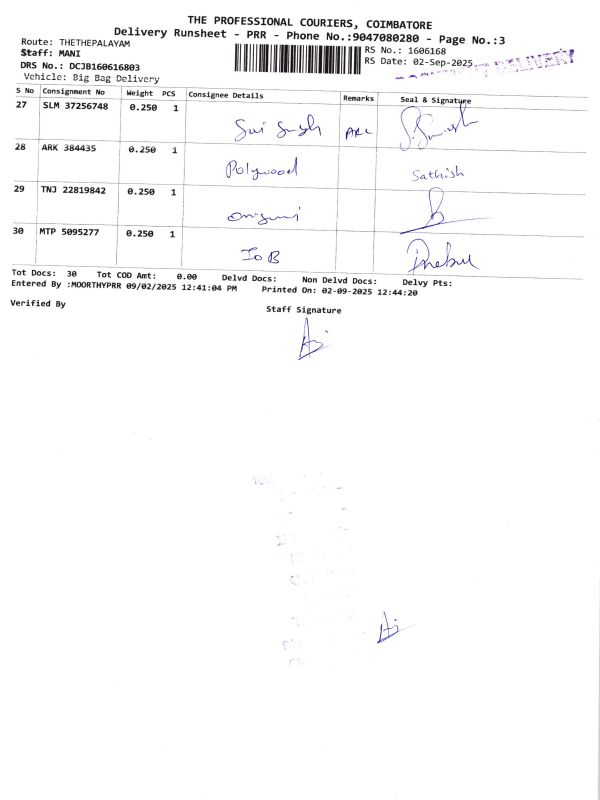 THE PROFESSIONAL COURIERS, COIMBATORE
Delivery Runsheet - PRR - Phone No.:9047080280 - Page No.:3
Route: THETHEPALAYAM
RS No.: 1606168
Staff: MANI
RS Date: 02-Sep-2025
DRS No.: DCJB160616803
DELIVERY
Vehicle: Big Bag Delivery
S No Consignment No Weight PCS Consignee Details Remarks Seal & Signature
27 SLM 37256748 0.250 1
Sai Singh
28 ARK 384435 0.250 1
Polywood Sathish
29 TNJ 22819842 0.250 1
30 MTP 5095277 0.250 1
IOB
Tot Docs: 30 Tot COD Amt: 0.00 Delvd Docs: Non Delvd Docs: Delvy Pts:
Entered By :MOORTHYPRR 09/02/2025 12:41:04 PM Printed On: 02-09-2025 12:44:20
Verified By
Staff Signature